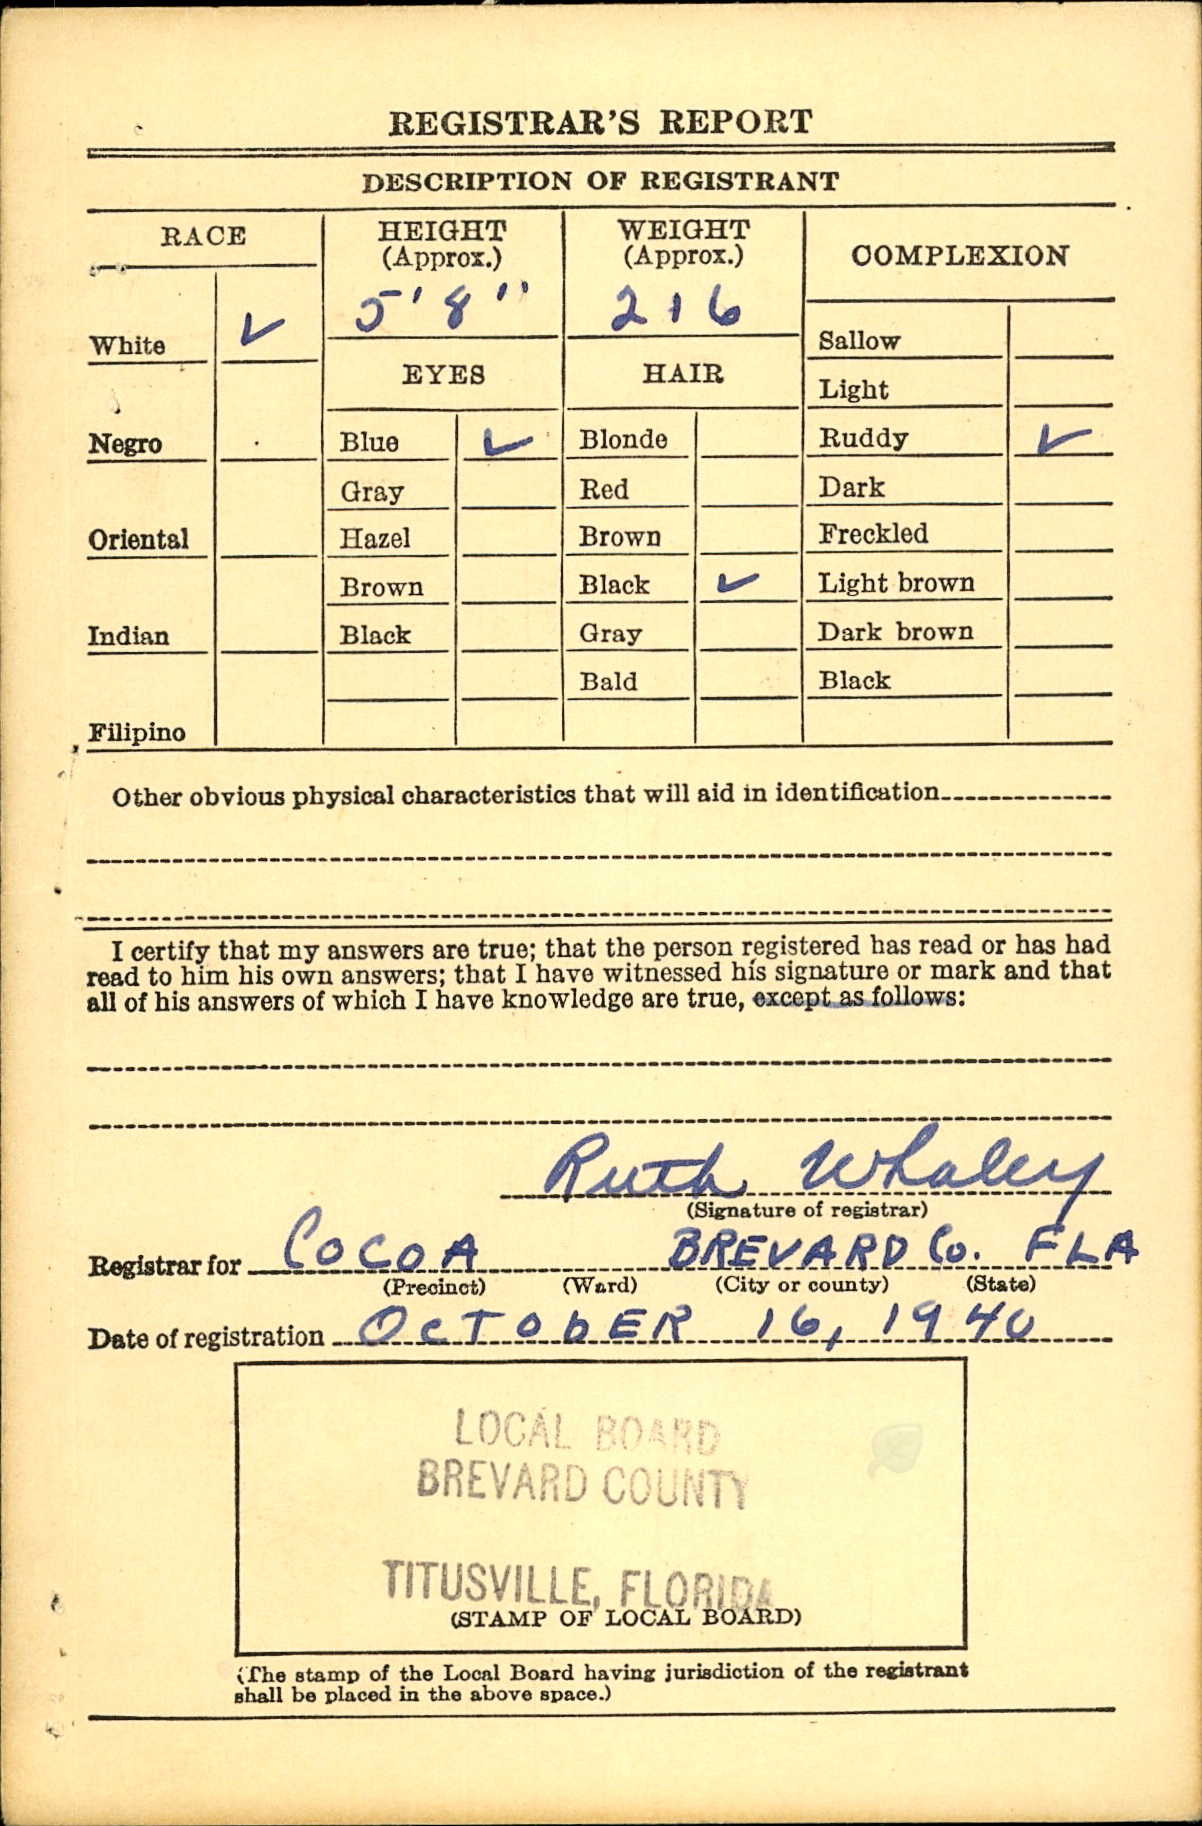 REGISTRAR'S REPORT
DESCRIPTION OF REGISTRANT
RACE
HEIGHT
(Approx.)
WEIGHT
(Approx.)
COMPLEXION
5' 8''
216
White ✓
Sallow
EYES
HAIR
Light
Negro
Blue ✓
Blonde
Ruddy ✓
Gray
Red
Dark
Oriental
Hazel
Brown
Freckled
Brown
Black ✓
Light brown
Indian
Black
Gray
Dark brown
Bald
Black
Filipino
Other obvious physical characteristics that will aid in identification
I certify that my answers are true; that the person registered has read or has had
read to him his own answers; that I have witnessed his signature or mark and that
all of his answers of which I have knowledge are true, except as follows:
Ruth Whaley
(Signature of registrar)
Registrar for COCOA BREVARD Co. FLA
(Precinct) (Ward) (City or county) (State)
Date of registration OCTOBER 16, 1940
LOCAL BOARD
BREVARD COUNTY
TITUSVILLE, FLORIDA
(STAMP OF LOCAL BOARD)
(The stamp of the Local Board having jurisdiction of the registrant
shall be placed in the above space.)